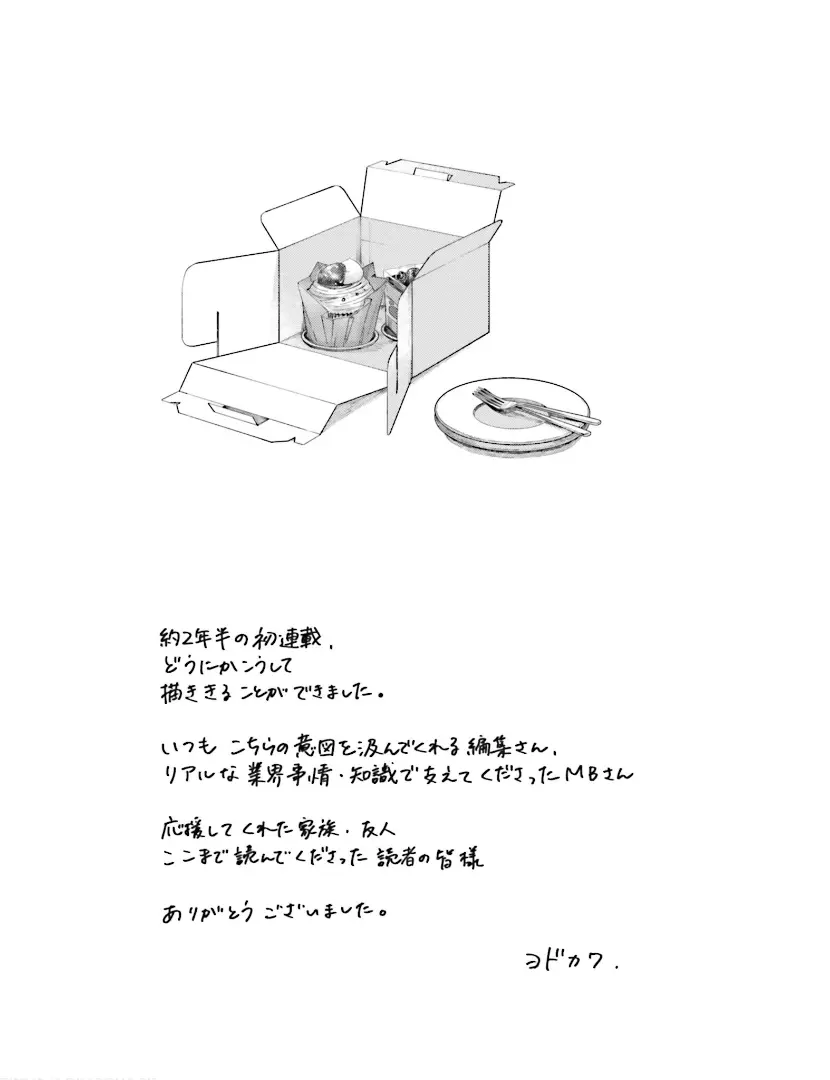 約2年半の初連載、
どうにかこうして
描ききることができました。
いつも こちらの意図を汲んでくれる編集さん、
リアルな業界事情・知識で支えてくださったMBさん
応援してくれた家族・友人
ここまで読んでくださった読者の皆様
ありがとうございました。
ヨドカワ.